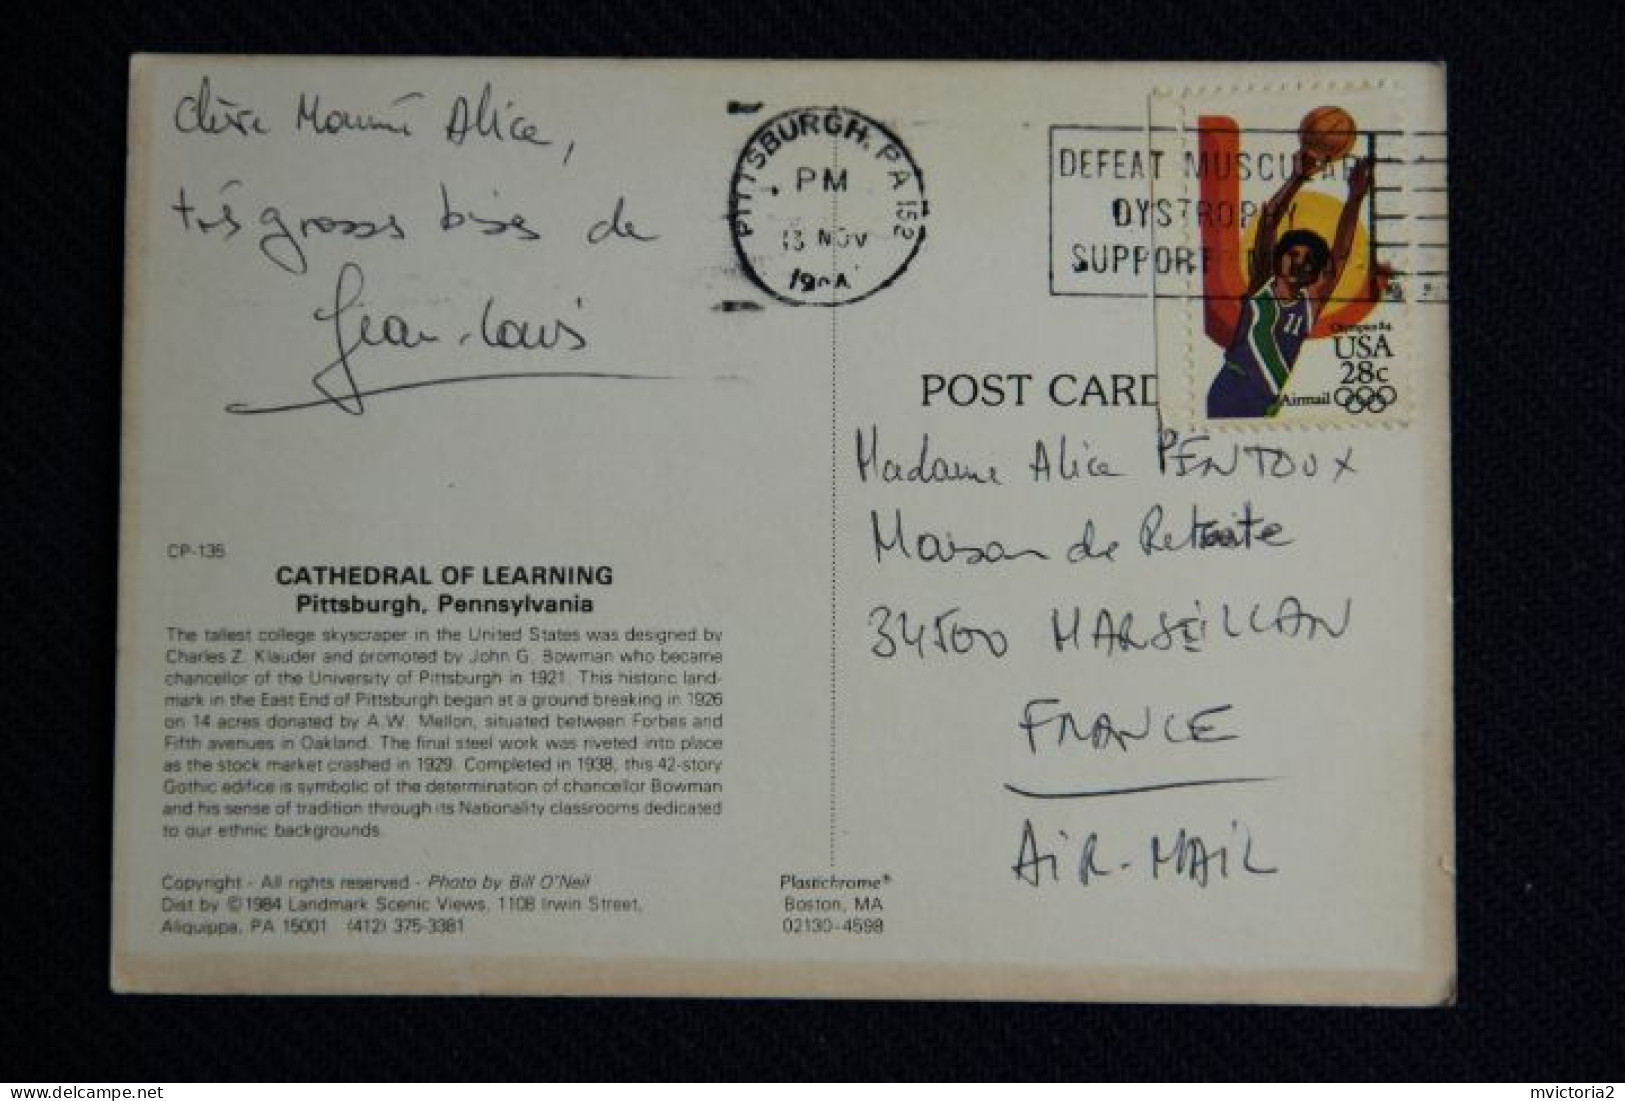 Chère Mamé Alice,
très grosses bises de
Jean-Louis
PITTSBURGH, PA 152
PM
13 NOV
DEFEAT MUSCULAR
DYSTROPHY
SUPPORT
Olympics 84
USA
28c
Airmail
11
POST CARD
Madame Alice PENTOUX
Maison de Retraite
34500 MARSEILLAN
FRANCE
AIR-MAIL
CP-135
CATHEDRAL OF LEARNING
Pittsburgh, Pennsylvania
The tallest college skyscraper in the United States was designed by
Charles Z. Klauder and promoted by John G. Bowman who became
chancellor of the University of Pittsburgh in 1921. This historic land-
mark in the East End of Pittsburgh began at a ground breaking in 1926
on 14 acres donated by A.W. Mellon, situated between Forbes and
Fifth avenues in Oakland. The final steel work was riveted into place
as the stock market crashed in 1929. Completed in 1938, this 42-story
Gothic edifice is symbolic of the determination of chancellor Bowman
and his sense of tradition through its Nationality classrooms dedicated
to our ethnic backgrounds.
Copyright - All rights reserved - Photo by Bill O'Neil
Dist by ©1984 Landmark Scenic Views, 1108 Irwin Street,
Aliquippa, PA 15001 (412) 375-3381
Plastichrome®
Boston, MA
02130-4598
mvictoria2